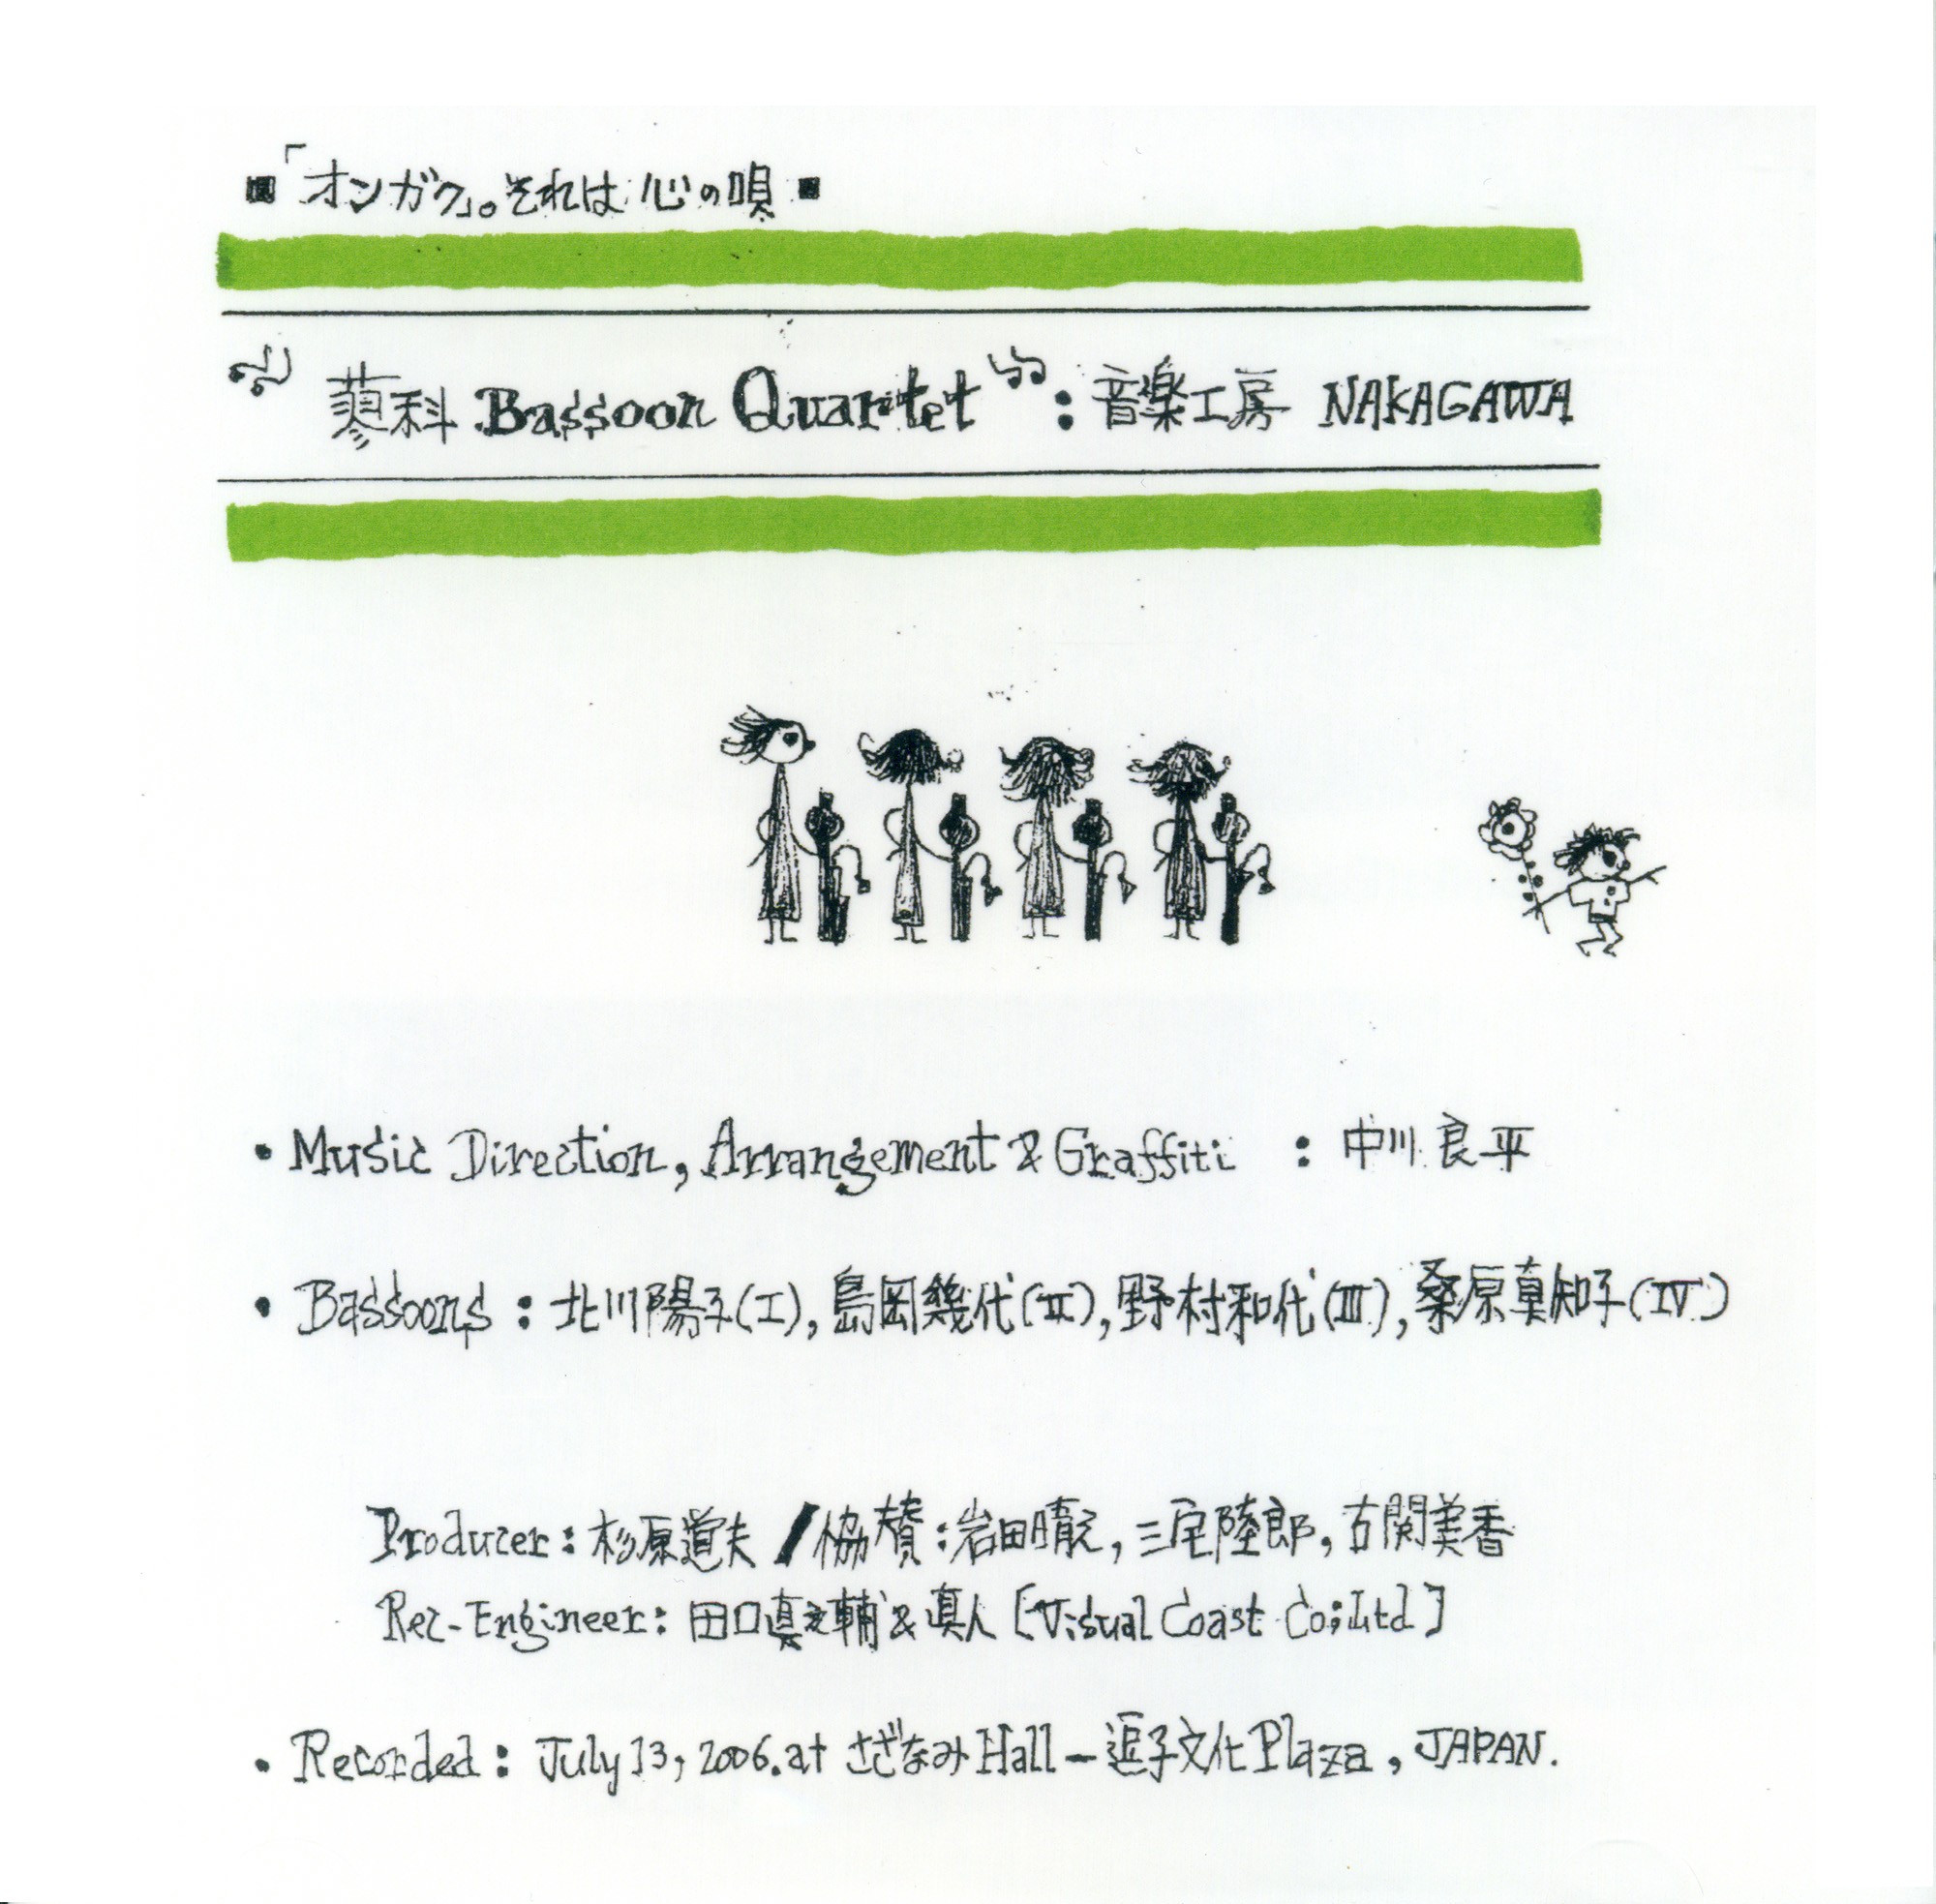 ■「オンガク」。それは 心の唄■
蓼科 Bassoon Quartet : 音楽工房 NAKAGAWA
• Music Direction, Arrangement & Graffiti : 中川 良平
• Bassoons : 北川陽子(I), 島岡幾代(II), 野村和代(III), 桑原真知子(IV)
Producer : 杉原道夫 / 協賛 : 岩田晴之, 三宅陸郎, 古関美香
Rec-Engineer : 田口真之輔 & 眞人 [Visual Coast Co;Ltd]
• Recorded : July 13, 2006. at さざなみ Hall – 逗子文化 Plaza, JAPAN.